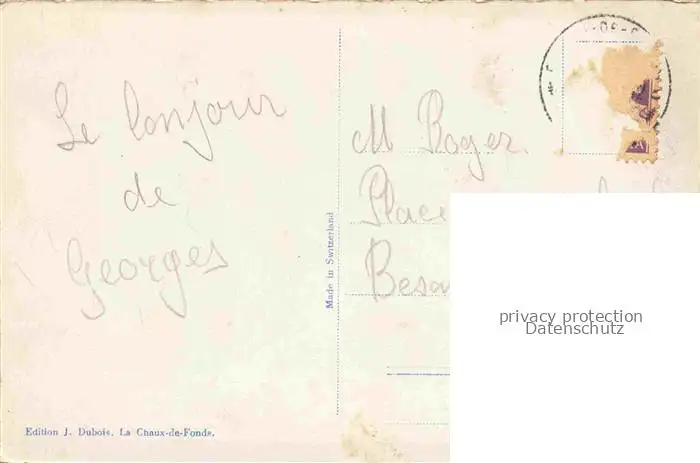 Le bonjour
de
Georges
M Roger
Place
Made in Switzerland
Edition J. Dubois, La Chaux-de-Fonds.
privacy protection
Datenschutz